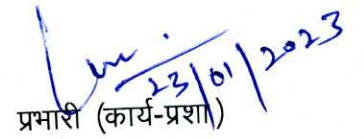 23/01/2023
प्रभारी (कार्य-प्रशा)